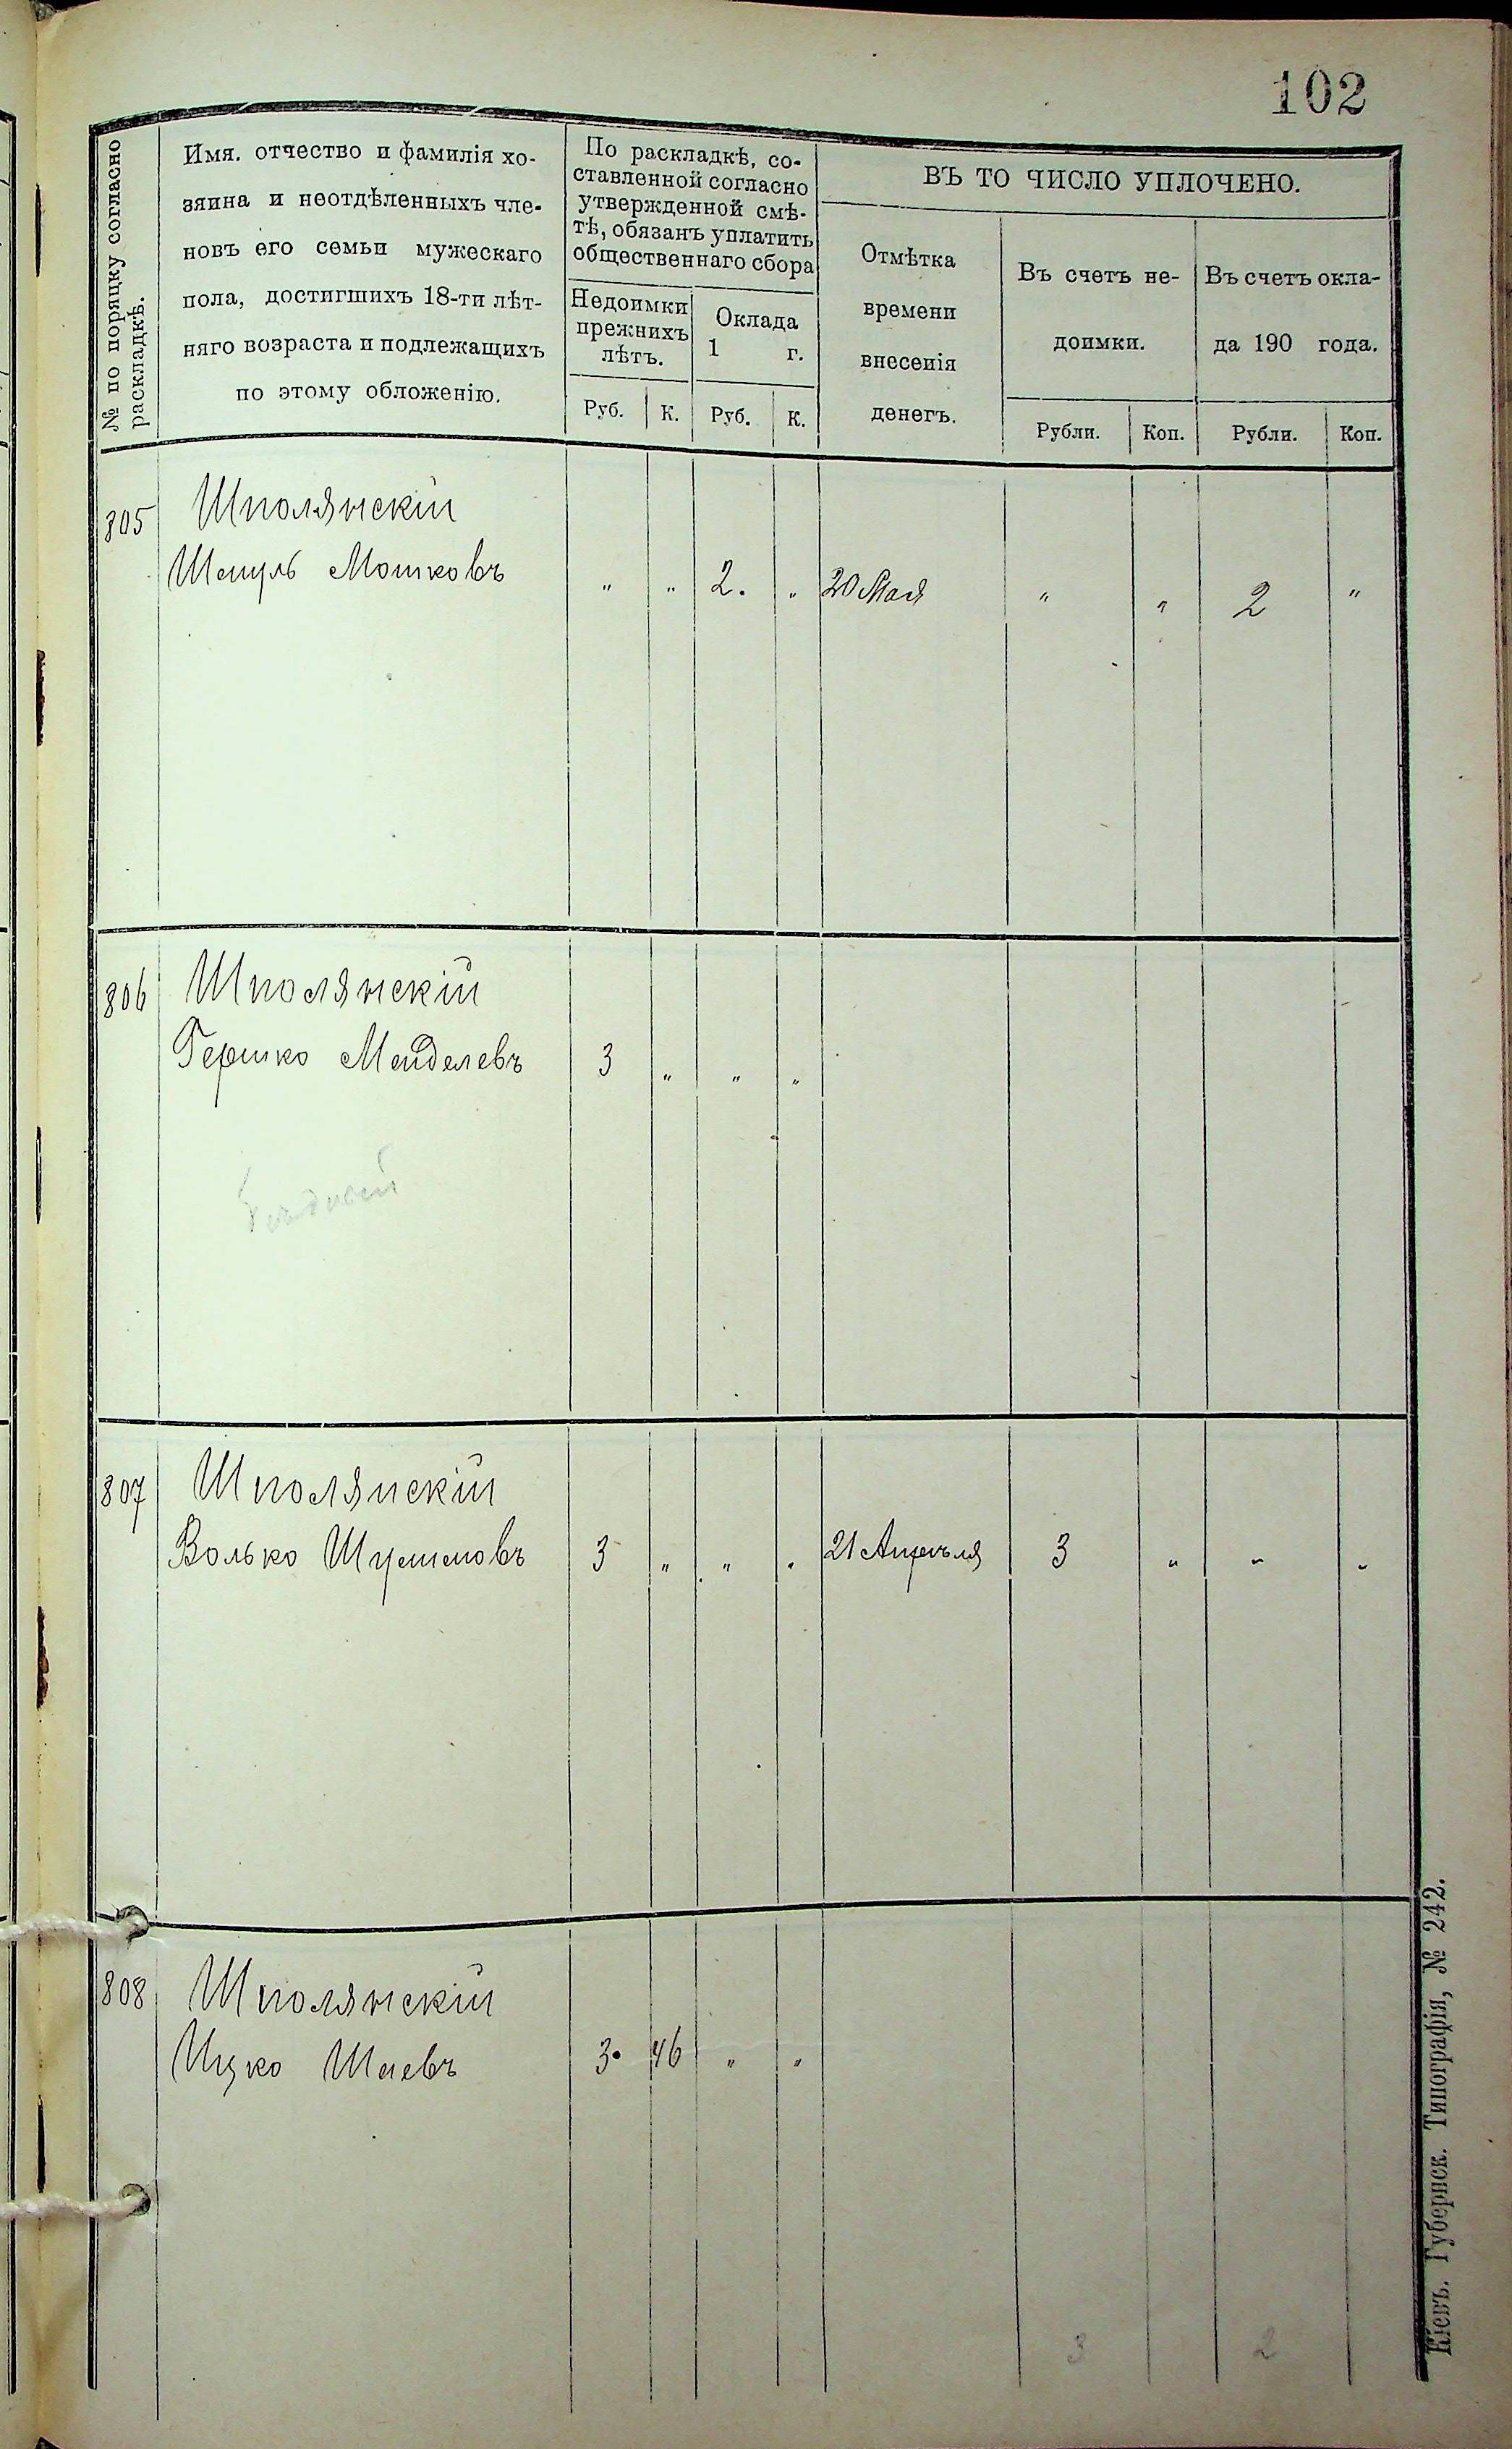 102
№ по поряцку согласно
раскладкѣ.
Имя. отчество и фамилія хо-
зяина и неотдѣленныхъ чле-
новъ его семьи мужескаго
пола, достигшихъ 18-ти лѣт-
няго возраста и подлежащихъ
по этому обложенію.
По раскладкѣ, со-
ставленной согласно
утвержденной смѣ-
тѣ, обязанъ уплатить
общественнаго сбора
Недоимки
прежнихъ
лѣтъ.
Оклада
1 г.
Руб. К. Руб. К.
ВЪ ТО ЧИСЛО УПЛОЧЕНО.
Отмѣтка
времени
внесенія
денегъ.
Въ счетъ не-
доимки.
Въ счетъ окла-
да 190 года.
Рубли. Коп. Рубли. Коп.
805 Шполянскій
Шмуль Мошковъ " " 2. " 20 Мая " " 2 "
806 Шполянскій
Гершко Менделевъ 3 " " "
807 Шполянскій
Волько Шулимовъ 3 " " " 21 Апрѣля 3 " " "
808 Шполянскій
Ицко Шаевъ 3. 46 " "
3 2
Кіевъ. Губернск. Типографія, № 242.